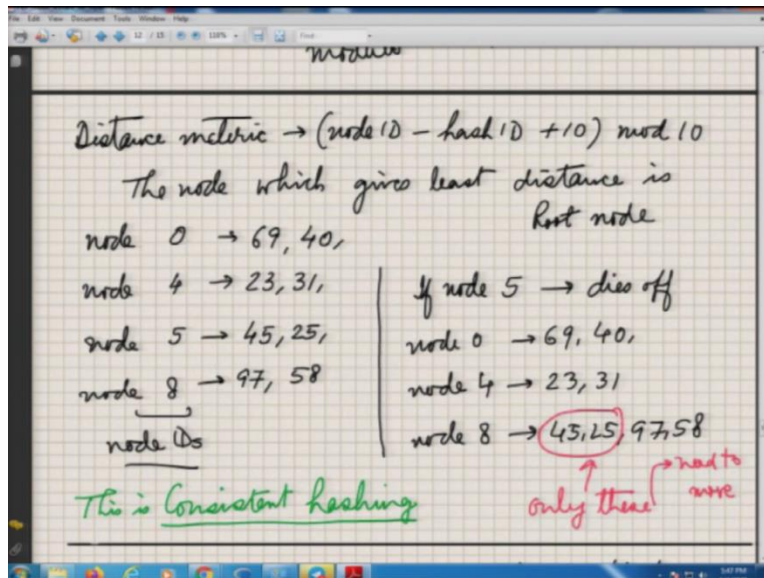 File Edit View Document Tools Window Help
12 / 15
Find
modulo
Distance meteric → (node ID - hash ID + 10) mod 10
The node which gives least distance is
Root node
node 0 → 69, 40,
node 4 → 23, 31,
node 5 → 45, 25,
node 8 → 97, 58
node IDs
If node 5 → dies off
node 0 → 69, 40,
node 4 → 23, 31
node 8 → 45, 25, 97, 58
only these → need to
move
This is Consistent hashing
5:47 PM